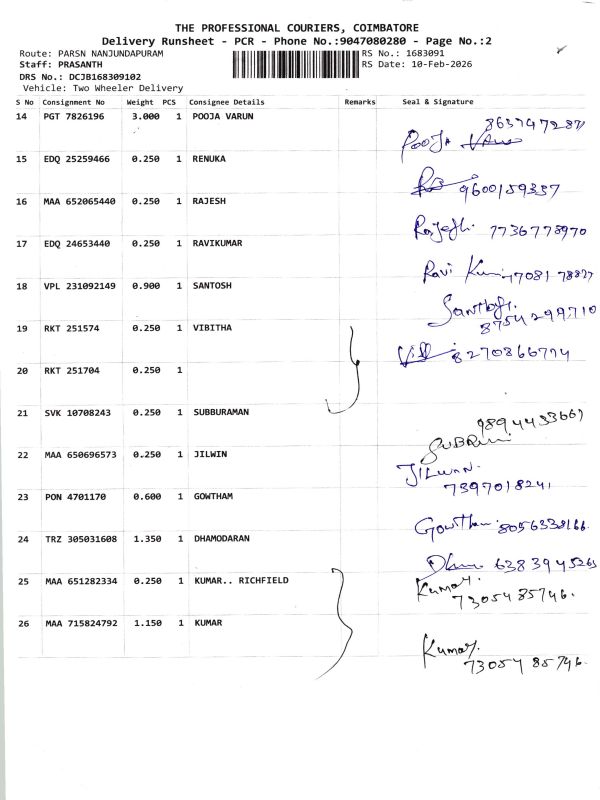 THE PROFESSIONAL COURIERS, COIMBATORE
Delivery Runsheet - PCR - Phone No.:9047080280 - Page No.:2
Route: PARSN NANJUNDAPURAM RS No.: 1683091
Staff: PRASANTH RS Date: 10-Feb-2026
DRS No.: DCJB168309102
Vehicle: Two Wheeler Delivery
S No Consignment No Weight PCS Consignee Details Remarks Seal & Signature
14 PGT 7826196 3.000 1 POOJA VARUN
Pooja
15 EDQ 25259466 0.250 1 RENUKA
9600159357
16 MAA 652065440 0.250 1 RAJESH
7736778970
17 EDQ 24653440 0.250 1 RAVIKUMAR
Ravi
18 VPL 231092149 0.900 1 SANTOSH
Santhosh
8754299710
19 RKT 251574 0.250 1 VIBITHA
8270866774
20 RKT 251704 0.250 1
21 SVK 10708243 0.250 1 SUBBURAMAN
22 MAA 650696573 0.250 1 JILWIN
7397018241
23 PON 4701170 0.600 1 GOWTHAM
Gowtham 8056338166
24 TRZ 305031608 1.350 1 DHAMODARAN
6383945263
25 MAA 651282334 0.250 1 KUMAR.. RICHFIELD
Kumar.
7305485746.
26 MAA 715824792 1.150 1 KUMAR
Kumar.
7305485746.